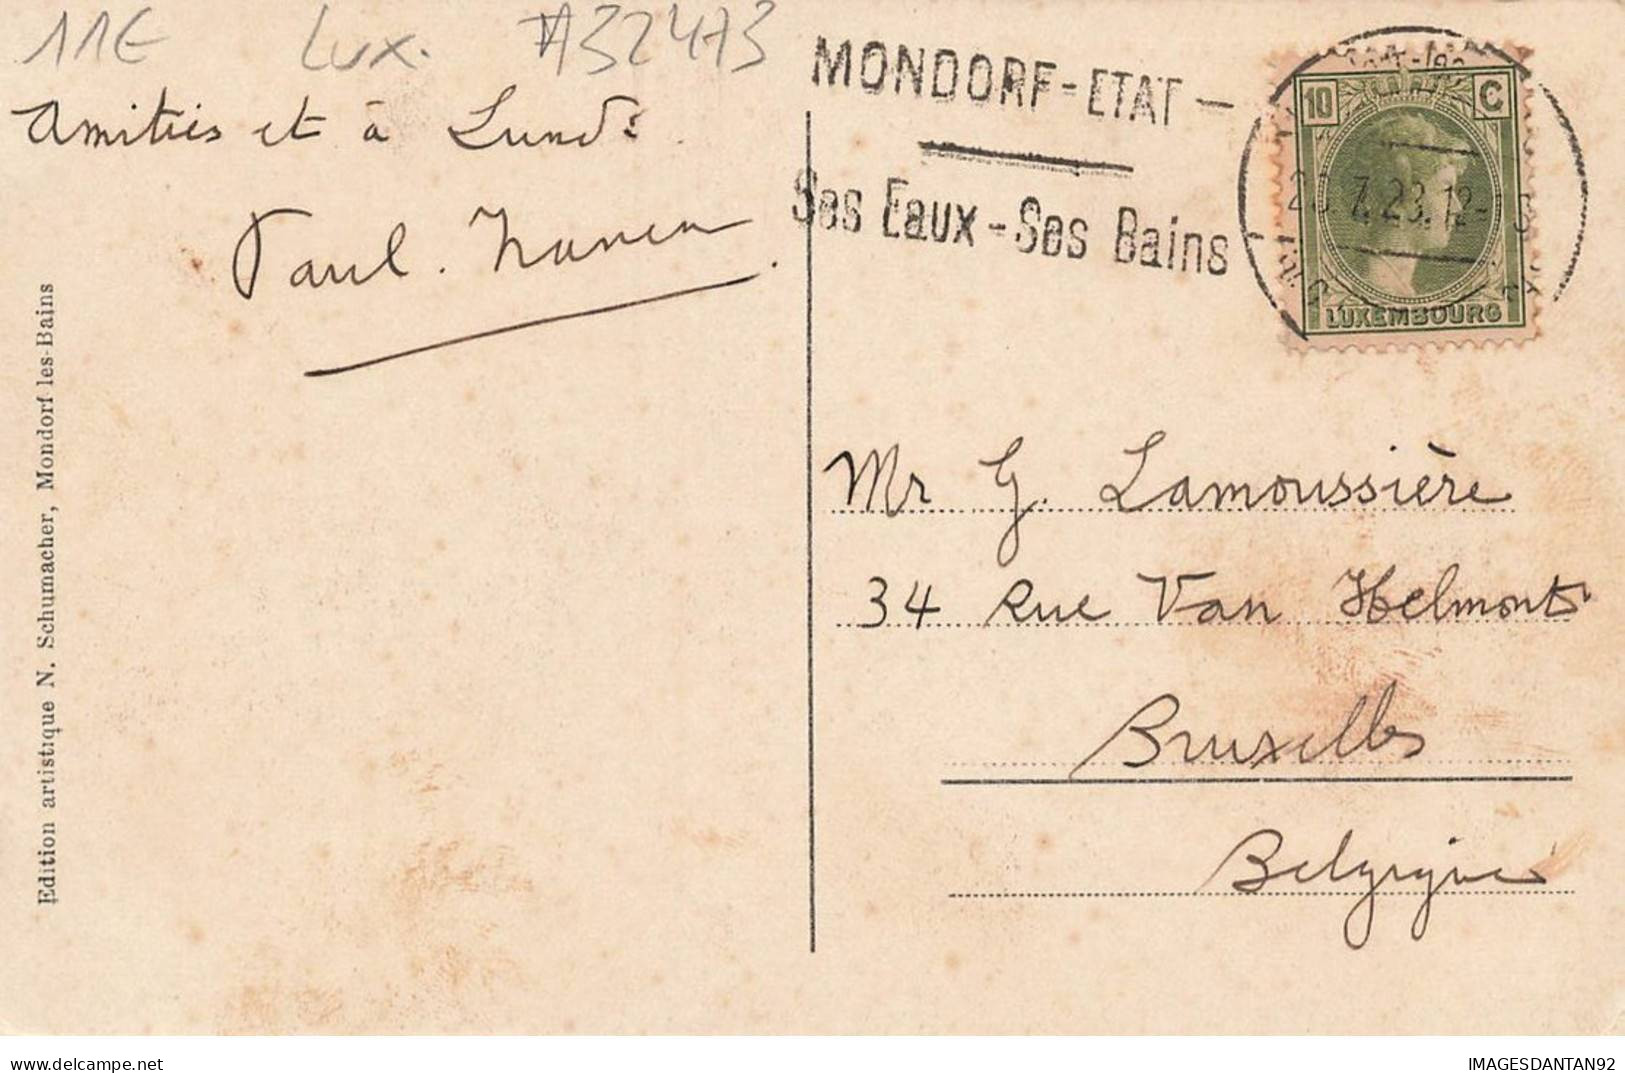 11E Lux. #32473
Amitiés et à Lundi
Paul.
Edition artistique N. Schumacher, Mondorf les-Bains
MONDORF-ETAT-
Ses Eaux-Ses Bains
10 C
7.23.12-
LUXEMBOURG
Mr G. Lamoussière
34 Rue Van Helmont
Bruxelles
Belgique
IMAGESDANTAN92
delcampe.net